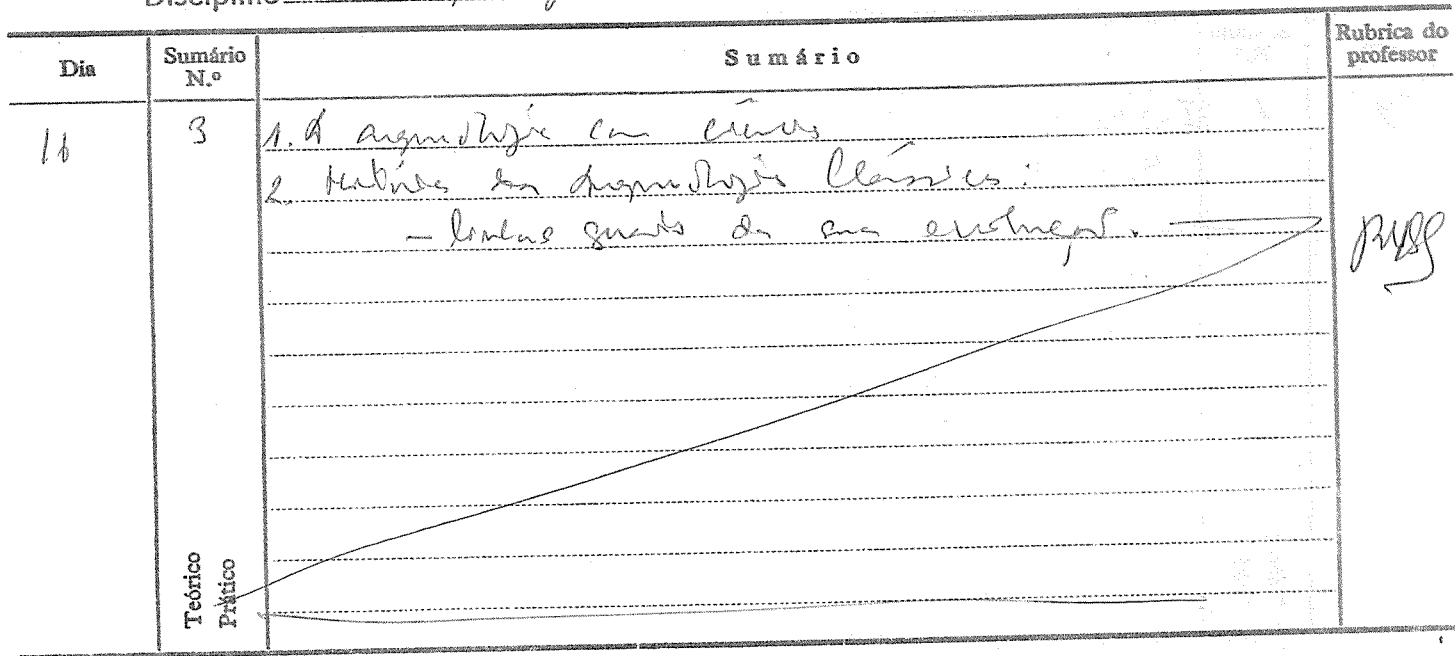 Dia
Sumário N.º
Sumário
Rubrica do professor
16
3
1. A arqueologia como ciência
2. História da Arqueologia Clássica:
– linhas gerais da sua evolução.
Teórico
Prático